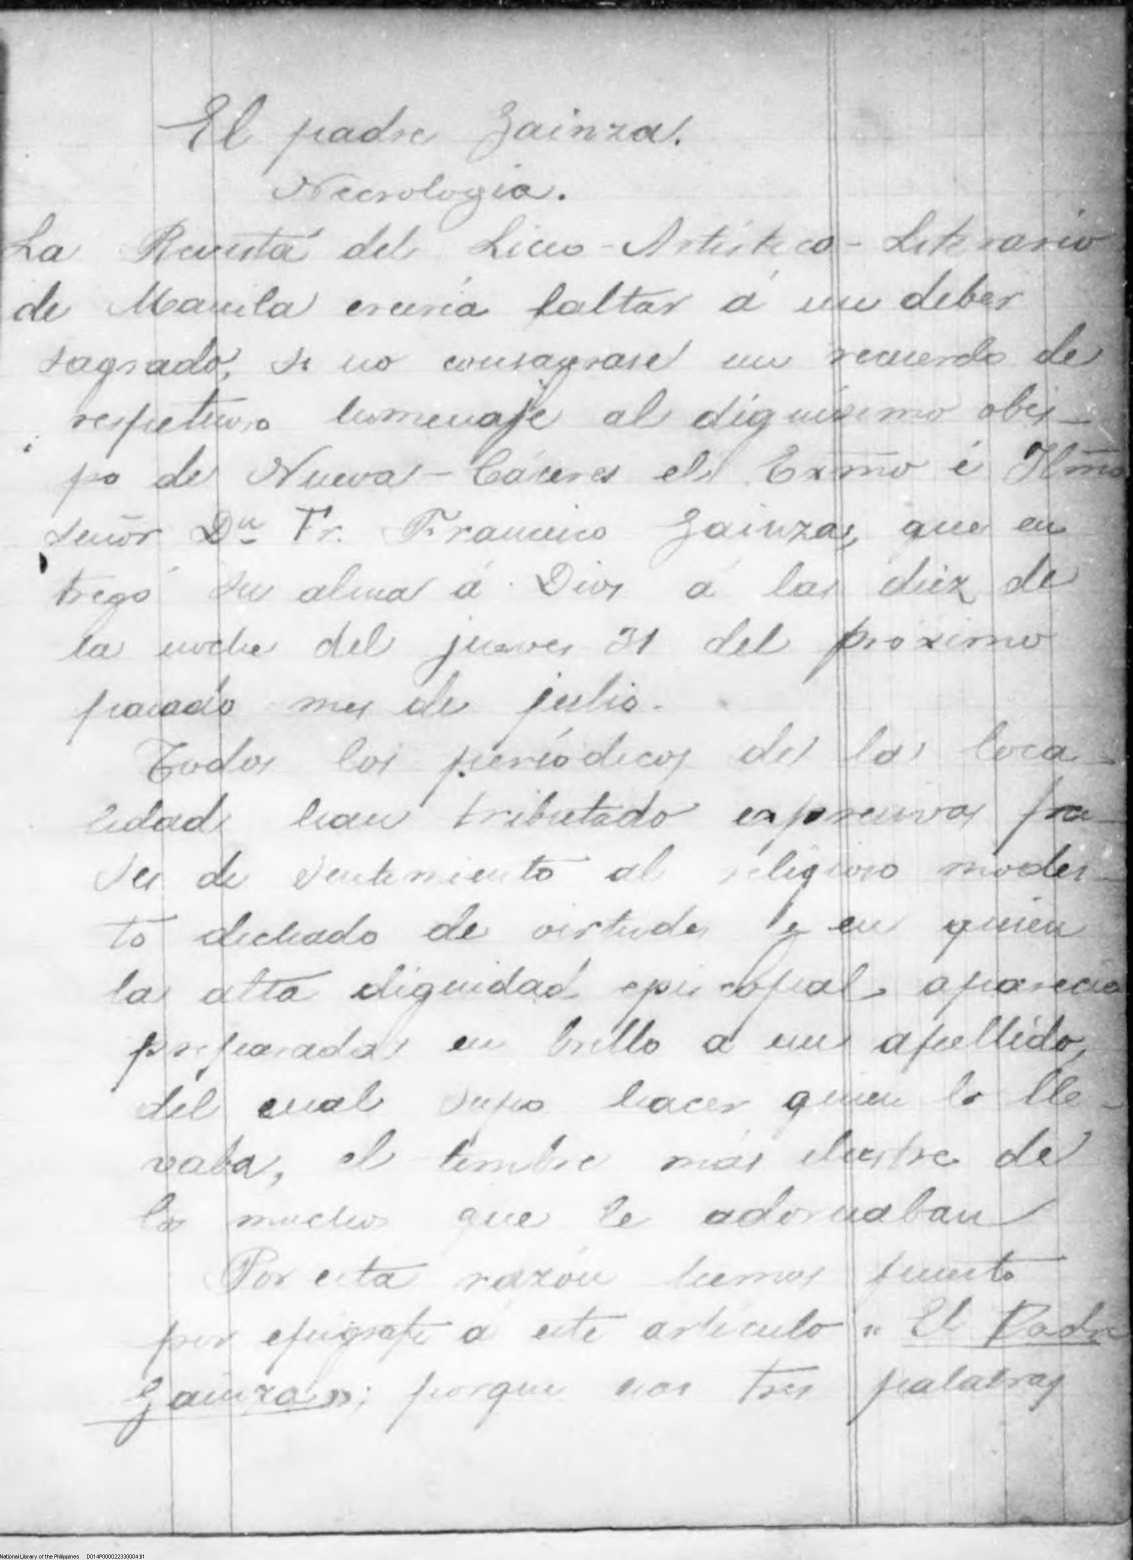 El padre Gainza.
Necrologia.
La Revista del Liceo-Artistico-Literario
de Manila creería faltar á un deber
sagrado, si no consagrase un recuerdo de
respetuoso homenaje al dignisimo obis-
po de Nueva-Cáceres el Exmo é Ilmo
Señor Dn Fr. Francisco Gainza, que en
tregó su alma á Dios á las diez de
la noche del jueves 31 del proximo
pasado mes de julio.
Todos los periódicos de la loca-
lidad han tributado expresivas fra-
ses de sentimiento al religioso modes-
to dechado de virtudes en quien
la alta dignidad episcopal aparecia
preparada en brillo a un apellido,
del cual supo hacer quien lo lle-
vaba, el timbre más ilustre de
los muchos que le adornaban
Por esta razón hemos puesto
por epigrafe á este articulo "El Padre
Gainza"; porque esas tres palabras
National Library of the Philippines